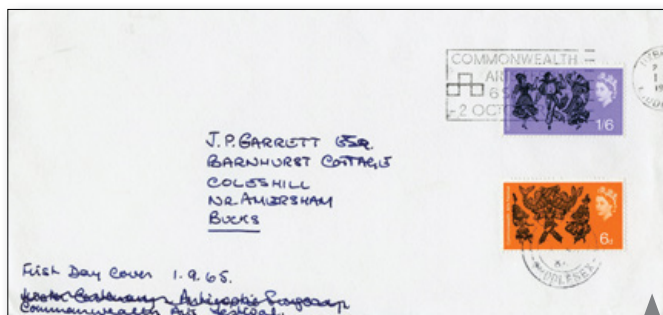 COMMONWEALTH
AR
6 S
-2 OCT
1/6
J.P. GARRETT ESQ.
BARNHURST COTTAGE
COLESHILL
NR. AMERSHAM
BUCKS
6D
MIDDLESEX
First Day Cover 1.9.65.
Centenary
Commonwealth Arts Festival.